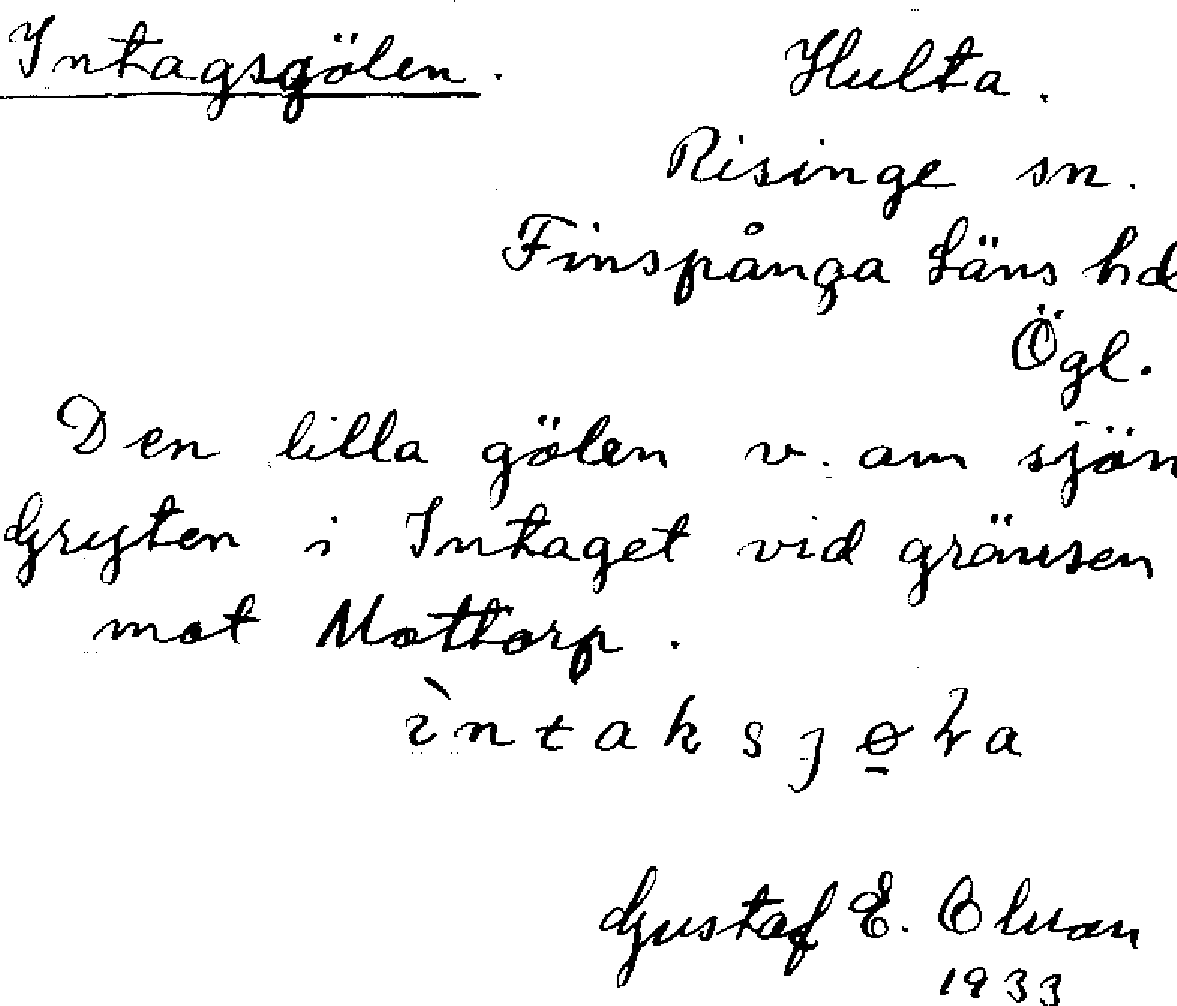 Intagsgölen. Hulta.
Risinge sn.
Finspånga läns hd
Ögl.
Den lilla gölen v. om sjön
Gryten i Intaget vid gränsen
mot Mottorp.
Gustaf E.
1933